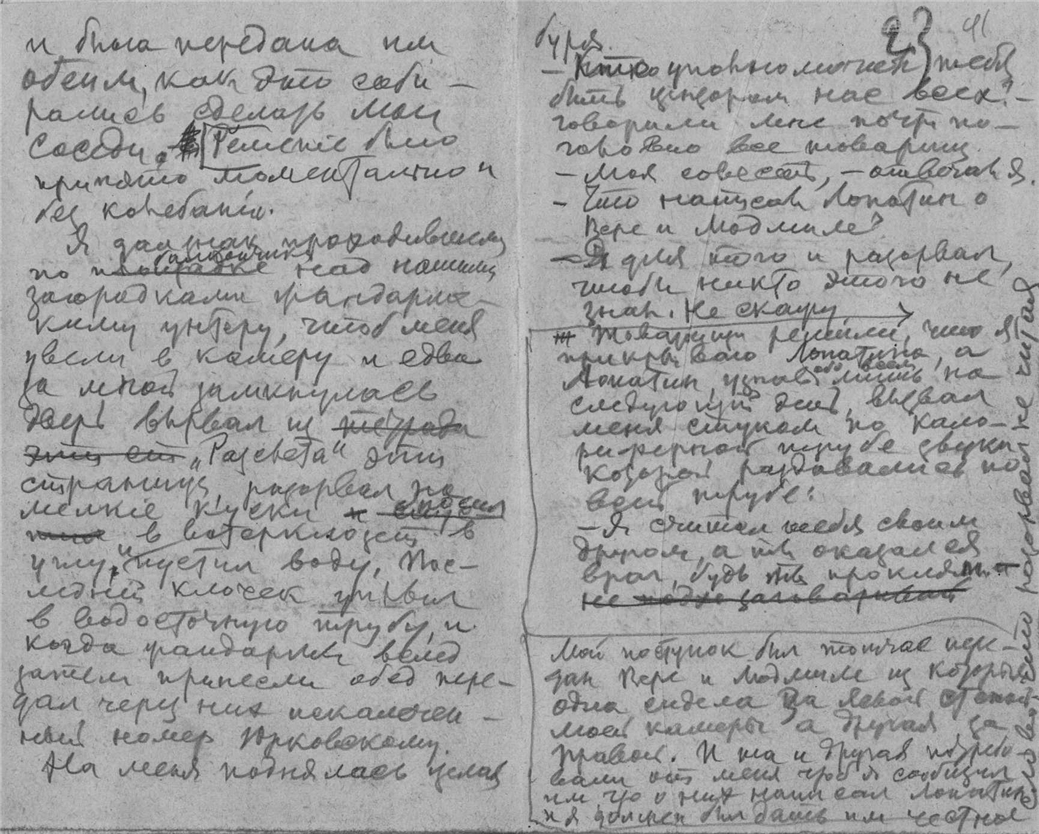 и была передана им
обеим, как это соби-
рались сделать мои
соседи. Решение было
принято моментально и
без колебанія.
Я дал знак проходившему
по площадке балкончика над нашими
загородками жандармс-
кому унтеру, чтоб меня
увели в камеру и едва
за мной замкнулась
дверь вырвал из тетради
"Разсвета" эти
страницы, разорвал на
мелкіе куски и спустил
в ватерклозет в
углу, пустил воду, Пос-
ледний клочек уплыл
в водосточную трубу, и
когда жандармы вслед
затем принесли обед пере-
дал через них искалечен-
ный номер Юрковскому.
На меня поднялась целая
23 41
буря.
- Кто уполномочил тебя
быть цензором нас всех? -
говорили мне почти по-
головно все товарищи.
- Моя совесть, - отвечал я.
- Что написал Лопатин о
Вере и Людмиле?
- Я для того и разорвал,
чтоби никто этого не
знал. Не скажу
Товарищи решили, что я
прикрываю Лопатина, а
Лопатин, узнав обо всем лишь на
следующий день, вызвал
меня стуком по кало-
риферной трубе звуки
которой раздавались по
всей трубе:
- Я считал тебя своим
другом, а ты оказался
враг, будь ты проклят -
не заговаривай
Мой поступок был тотчас пере-
дан Вере и Людмиле из которых
одна сидела за левой стеной
моей камеры а другая за
правой. И та и другая потребо-
вали от меня чтоб я сообщил
им, что о них написал Лопатин
и я должен был дать им честное